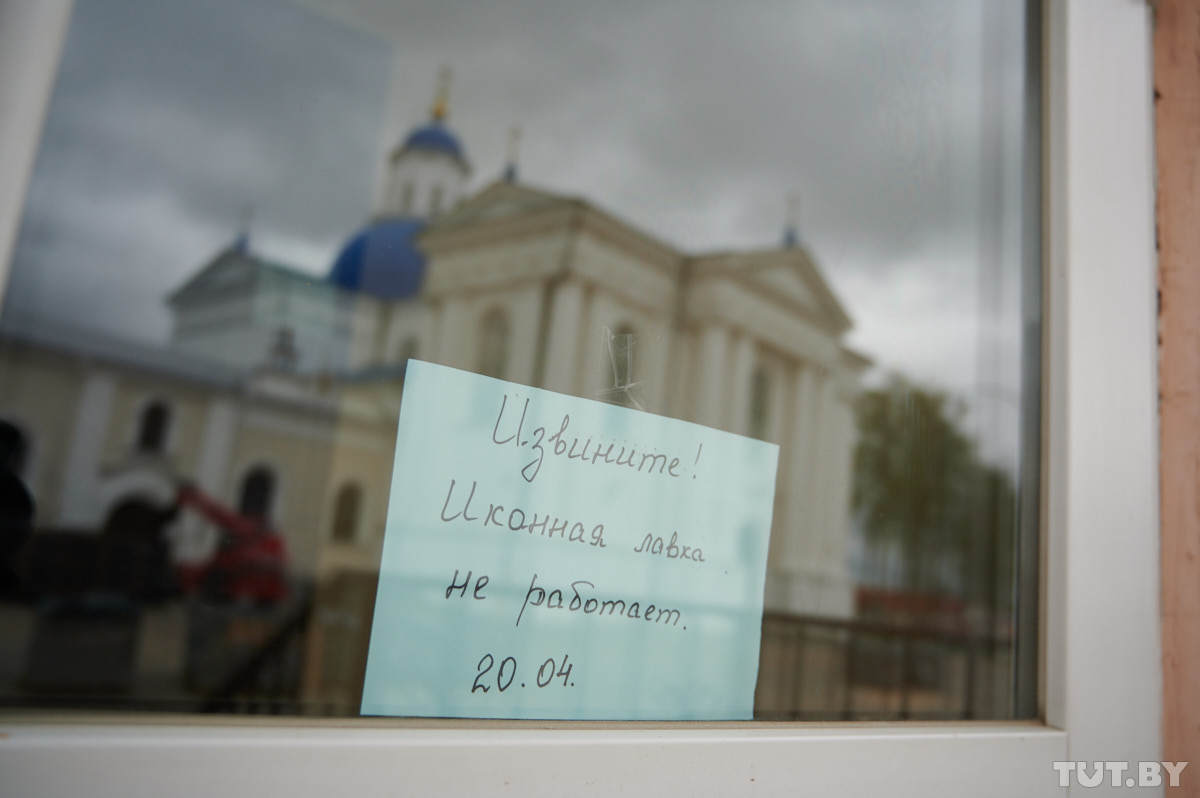 Извините!
Иконная лавка
не работает.
20.04.
TUT.BY